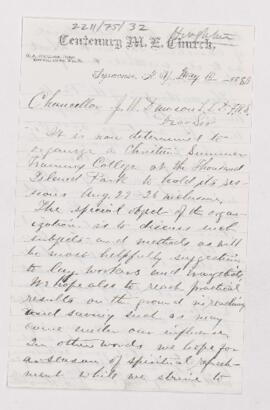 2211/75/32
Centenary M. E. Church,
Syracuse, N. Y. May 12 188
Chancellor J. W. Dawson L.L.D. F.R.S.
Dear Sir
It is now determined to
organize a Christian Summer
Training College at the Thousand
Island Park to hold its ses
sions Aug. 22-28 inclusive.
The special object of the organ-
ization is to discuss such
subjects and methods as will
be most helpfully suggestive
to lay workers and evangelists
We hope also to reach practical
results on the ground in reaching
and saving such as may
come under our influence
In other words we hope for
a season of spiritual
ment while we strive to